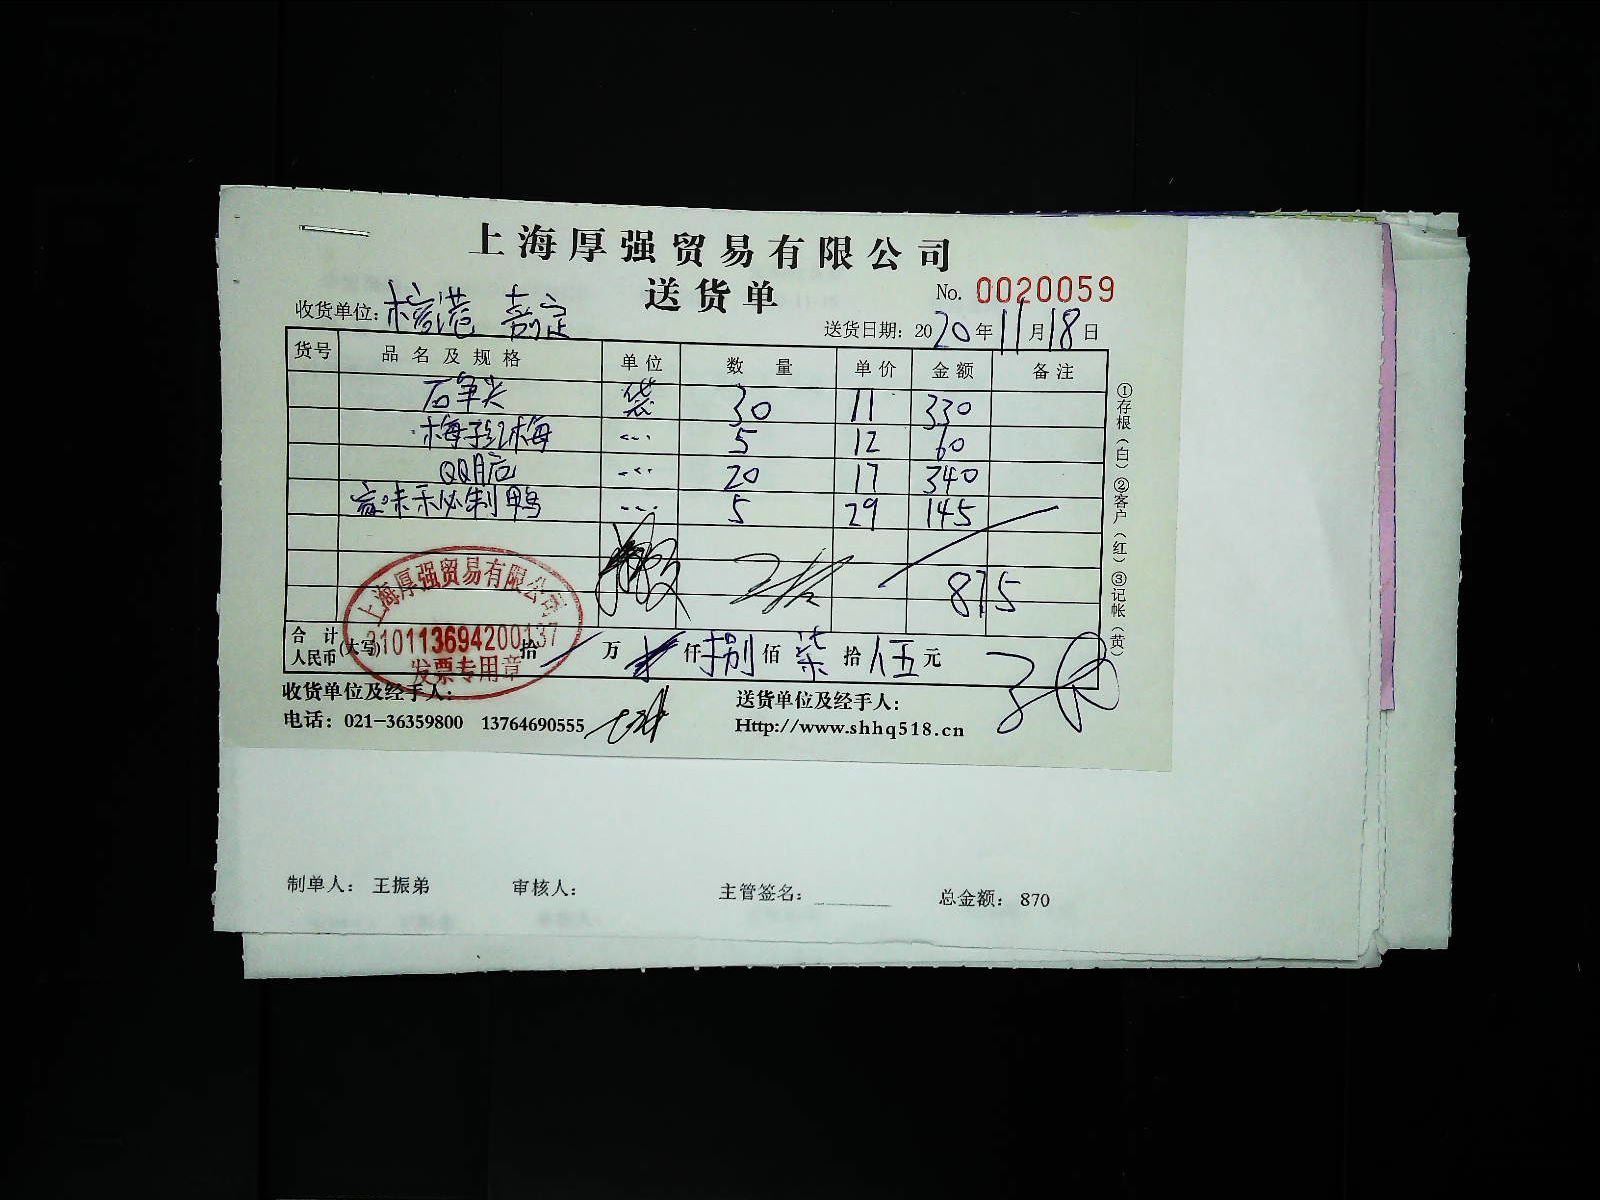 上海厚强贸易有限公司
送货单
No. 0020059
收货单位: 嘉定
送货日期: 2020年11月18日
货号 品名及规格 单位 数量 单价 金额 备注
石笋尖 袋 30 11 330
梅 梅 5 12 60
QQ 20 17 340
味秘制鸭 5 29 145
875
上海厚强贸易有限公司
310113694200137
发票专用章
合计人民币(大写) 拾 万 仟捌佰柒拾伍元
收货单位及经手人:
送货单位及经手人:
电话: 021-36359800 13764690555
Http://www.shhq518.cn
①存根(白)②客户(红)③记帐(黄)
制单人: 王振弟 审核人: 主管签名: 总金额: 870